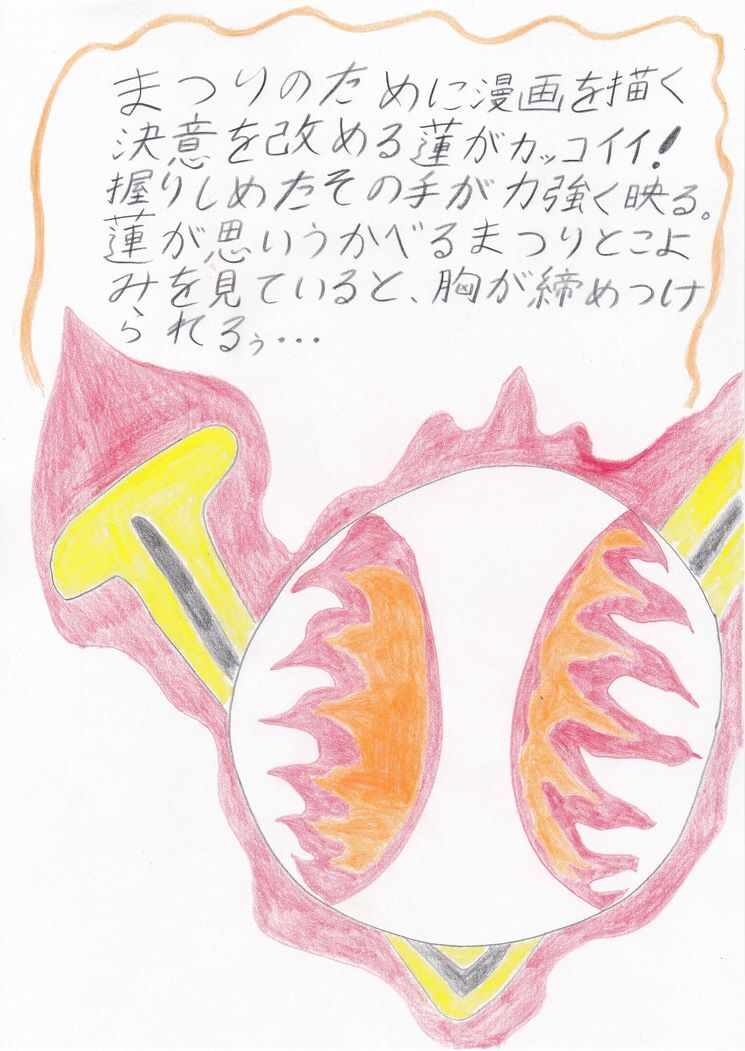 まつりのために漫画を描く
決意を改める蓮がカッコイイ!
握りしめたその手が力強く映る。
蓮が思いうかべるまつりとこよ
みを見ていると、胸が締めつけ
られるぅ…